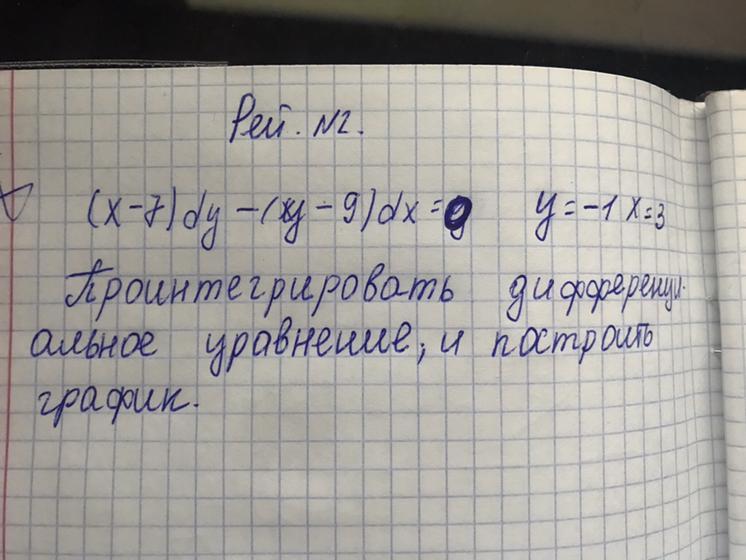 Рей. №2.
(x-7)dy-(xy-9)dx=0 y=-1 x=3
Проинтегрировать дифференци-
альное уравнение, и построить
график.